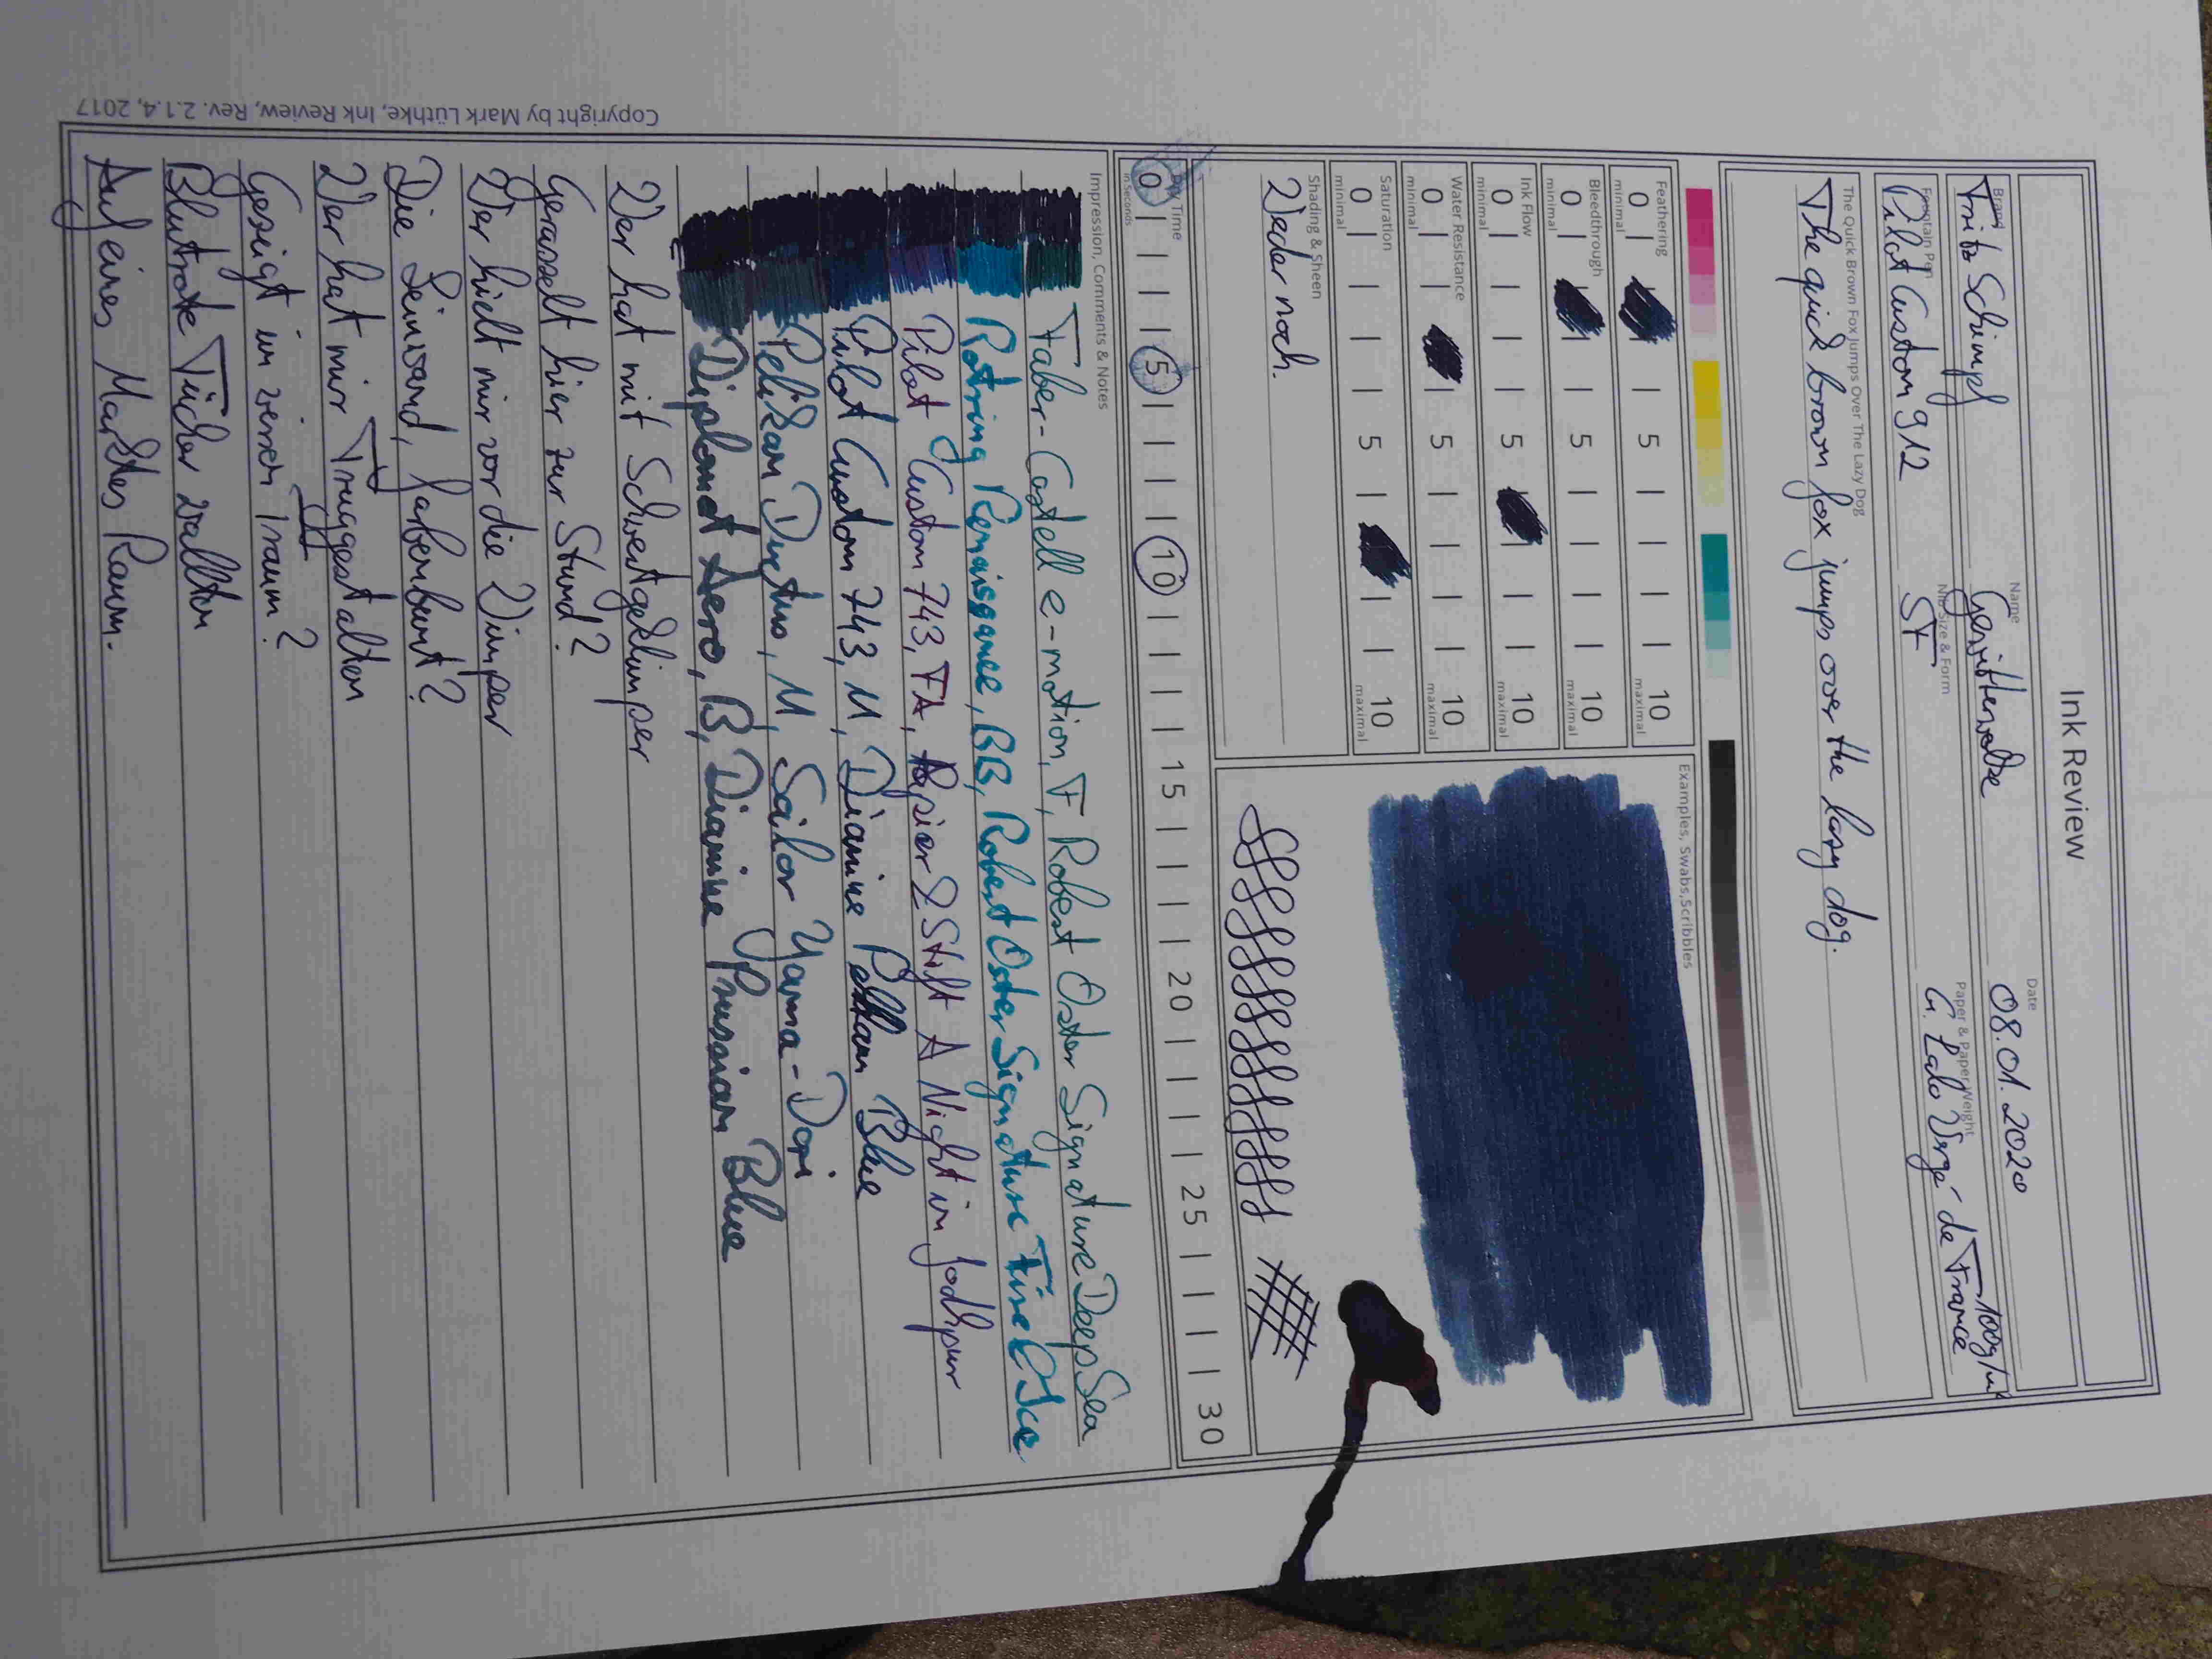 Ink Review
Brand Name Date
Fritz Schimpf Gewitterwolke 08.01.2020
Fountain Pen Nib Size & Form Paper & Paper Weight
Pilot Custom 912 SF G. Lalo Vergé de France 100g/m²
The Quick Brown Fox Jumps Over The Lazy Dog
The quick brown fox jumps over the lazy dog.
Feathering
0 | | | 5 | | | | 10
minimal maximal
Bleedthrough
0 | | | 5 | | | | 10
minimal maximal
Ink Flow
0 | | | | 5 | | | 10
minimal maximal
Water Resistance
0 | | | 5 | | | | 10
minimal maximal
Saturation
0 | | | | 5 | | | 10
minimal maximal
Shading & Sheen
Weder noch.
Examples, Swabs, Scribbles
Dry Time
0 | | | | 5 | | | | 10 | | | | 15 | | | | 20 | | | | 25 | | | | 30
in Seconds
Impression, Comments & Notes
Faber-Castell e-motion, F, Robert Oster Signature Deep Sea
Rotring Renaissance, BB, Robert Oster Signature Fire & Ice
Pilot Custom 743, FA, Papier & Stift A Night in Jodhpur
Pilot Custom 743, M, Diamine Blue
Pelikan Ductus, M, Sailor Yama-Dori
Diplomat Aero, B, Diamine Prussian Blue
Wer hat mit Schwertgeklimper
Gerasselt hier zur Stund?
Wer hielt mir vor die Wimper
Die Leinwand, farbenbunt?
Wer hat mir Truggestalten
Gezeigt in seinem Traum?
Blutrote Tücher wallten
Auf eines Marktes Raum.
Copyright by Mark Lüthke, Ink Review, Rev. 2.1.4, 2017